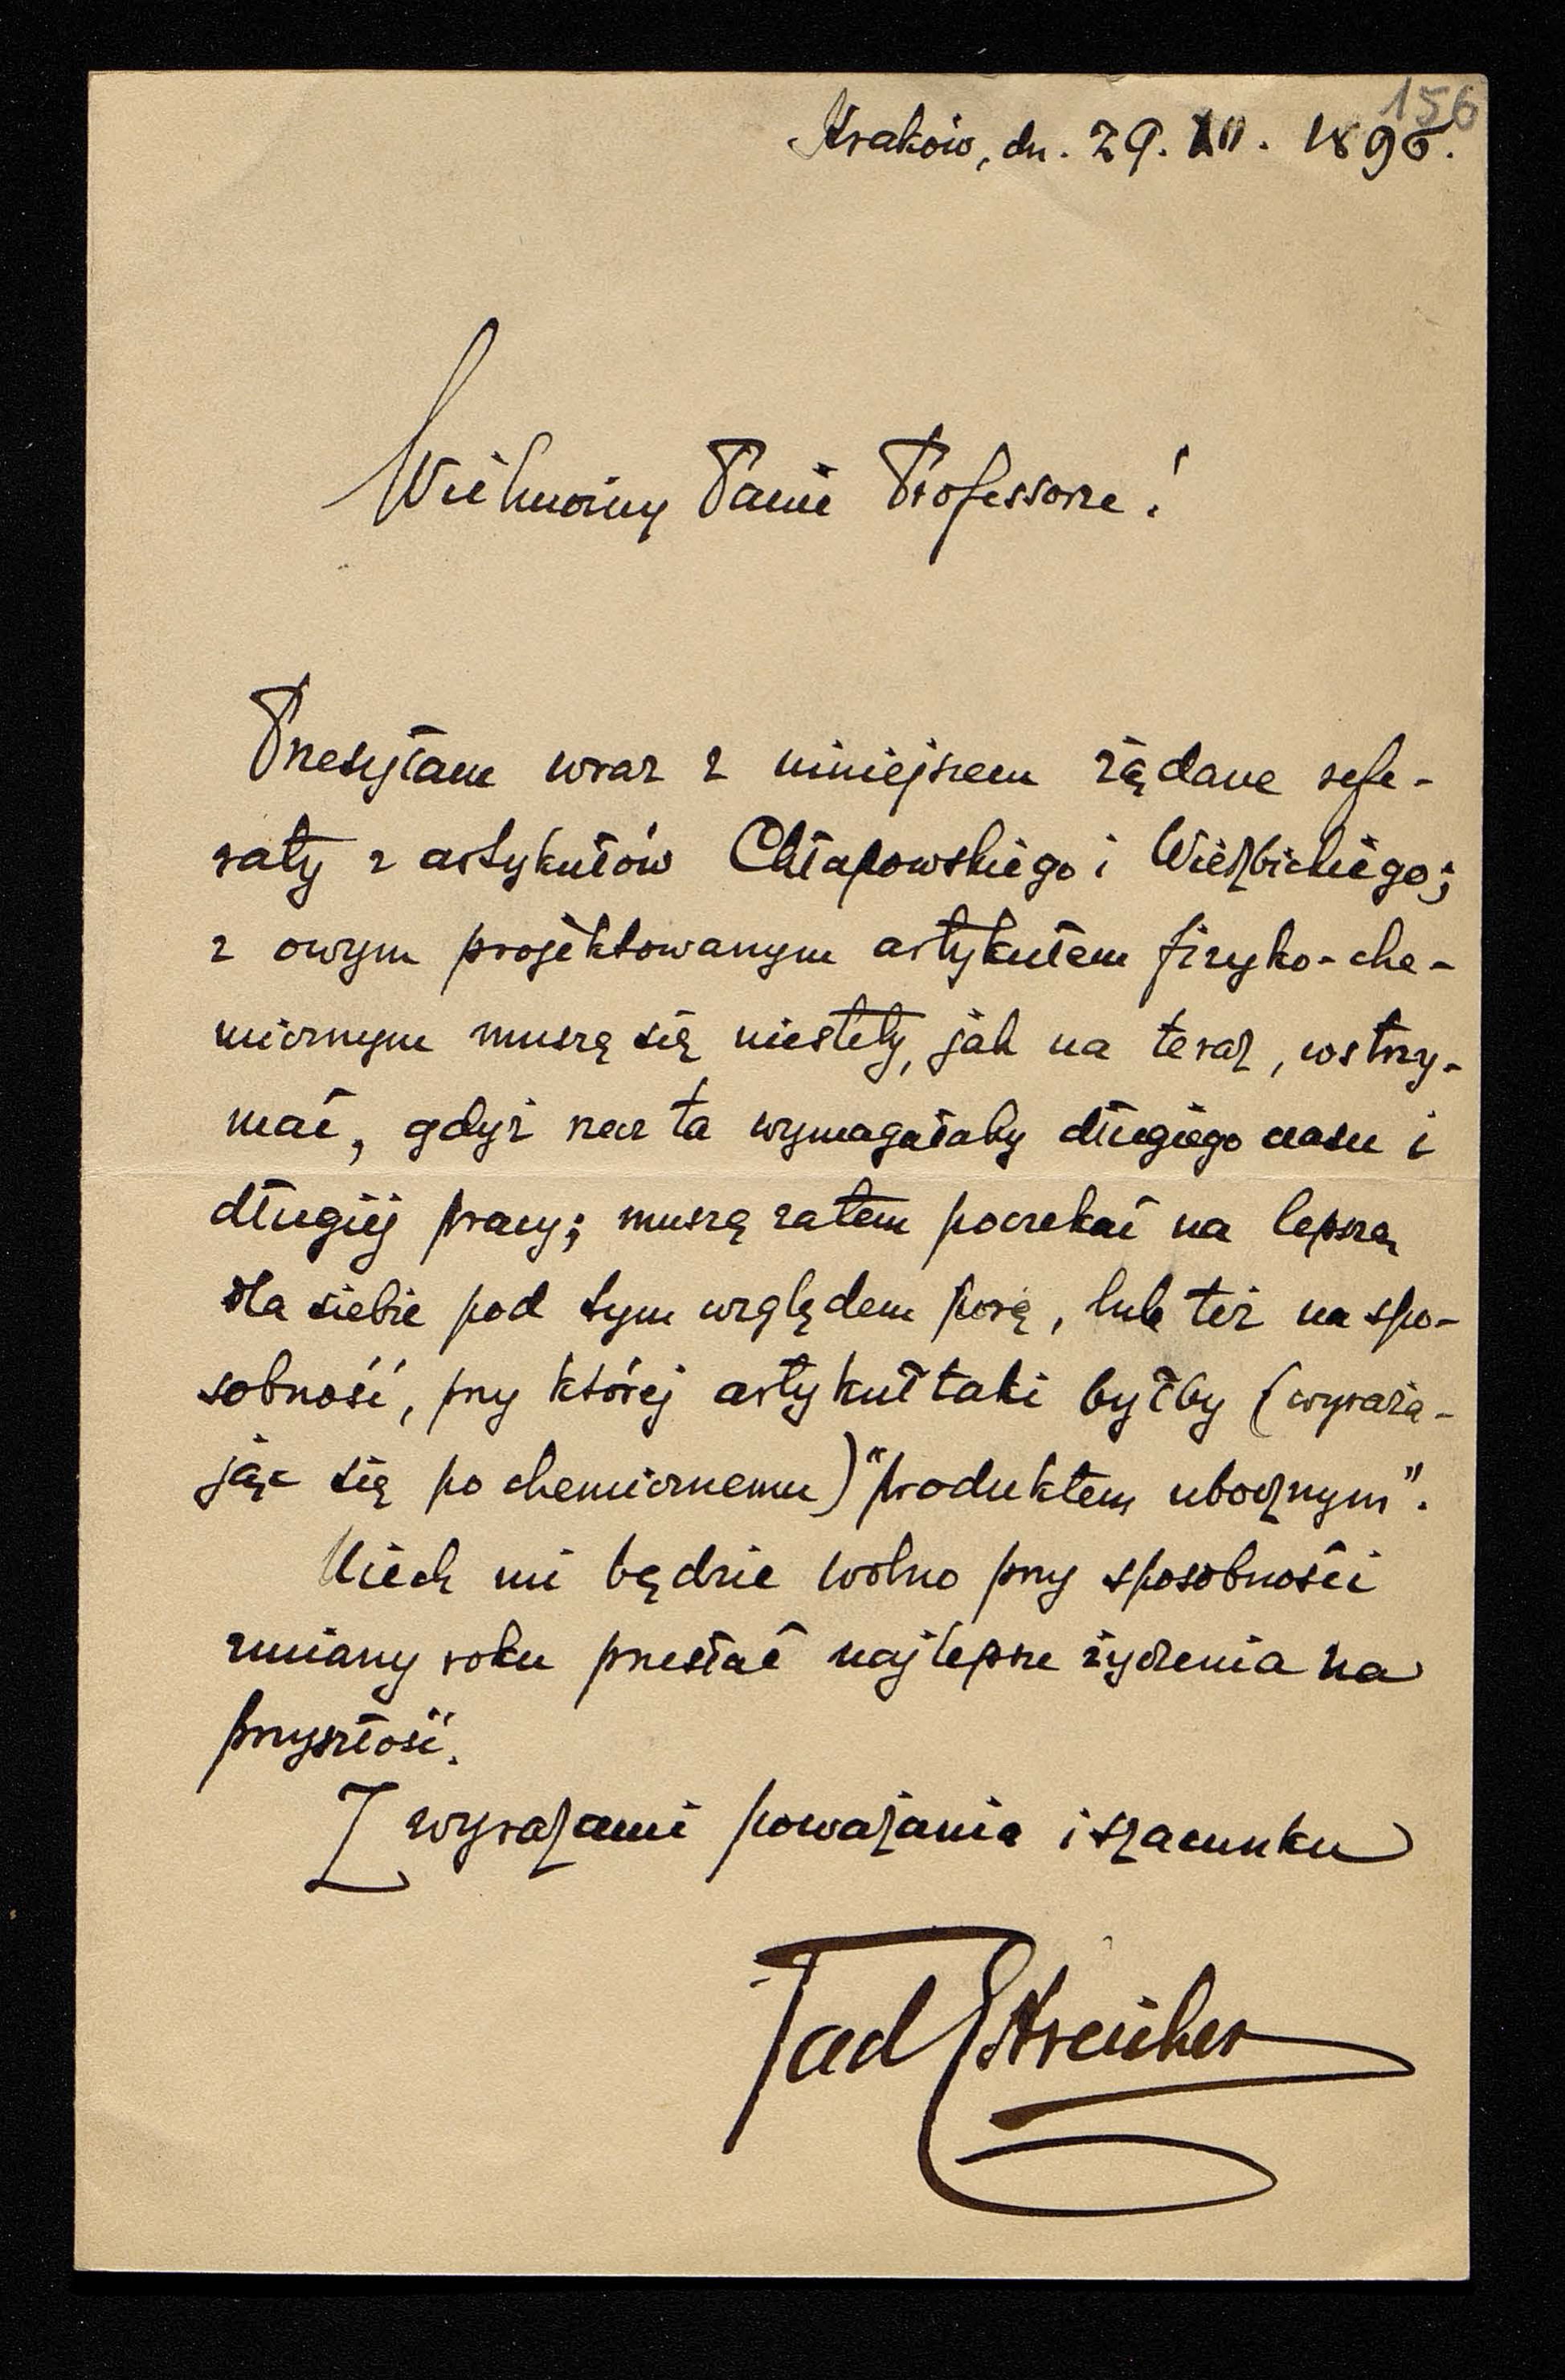 156
Kraków, dn. 29. XII. 1896.
Wielmożny Panie Professorze!
Przesyłam wraz z niniejszem żądane refe-
raty z artykułów Chłapowskiego i Wierzbickiego;
z owym projektowanym artykułem fizyko-che-
micznym muszę się niestety, jak na teraz, wstrzy-
mać, gdyż rzecz ta wymagałaby długiego czasu i
długiej pracy; muszę zatem poczekać na lepszą
dla siebie pod tym względem porę, lub też na spo-
sobność, przy której artykuł taki byłby (wyraża-
jąc się po chemicznemu) "produktem ubocznym".
Niech mi będzie wolno przy sposobności
zmiany roku przesłać najlepsze życzenia na
przyszłość.
Z wyrazami poważania i szacunku
Tad Estreicher